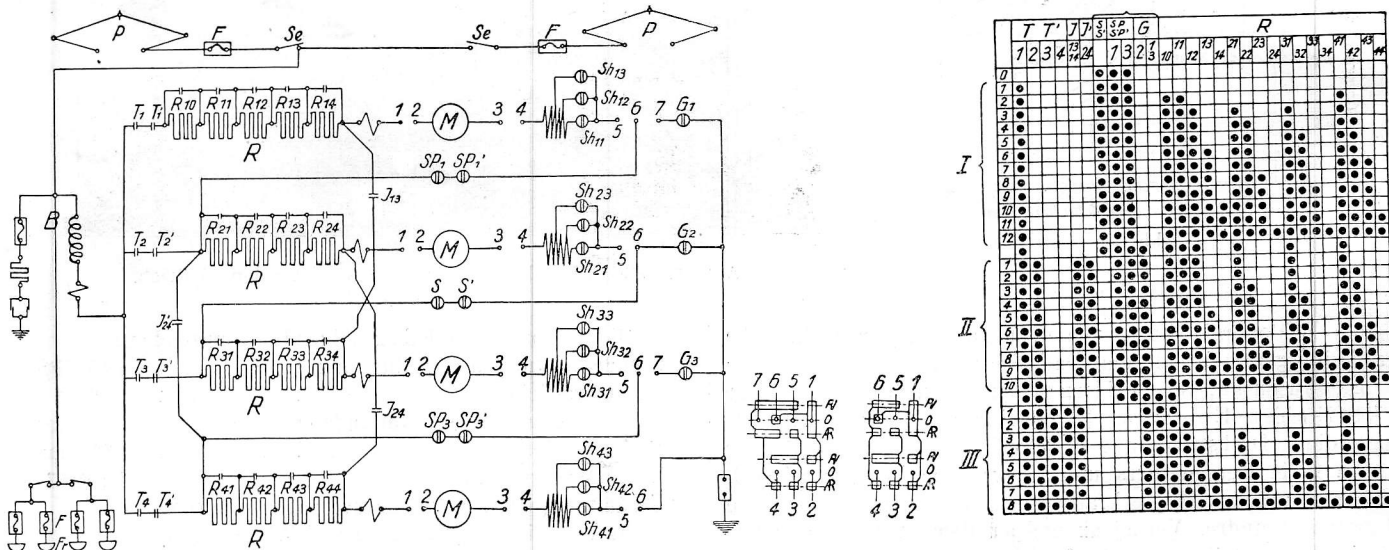 P F Se Se F P
T1 T1' R10 R11 R12 R13 R14 1 2 M 3 4 Sh13 Sh12 Sh11 5 6 7 G1
R
SP1 SP1'
J13
B T2 T2' R21 R22 R23 R24 1 2 M 3 4 Sh23 Sh22 Sh21 5 6 G2
R
S S'
J24'
T3 T3' R31 R32 R33 R34 1 2 M 3 4 Sh33 Sh32 Sh31 5 6 7 G3
R
J24
SP3 SP3'
T4 T4' R41 R42 R43 R44 1 2 M 3 4 Sh43 Sh42 Sh41 5 6
R
F
Fr
7 6 5 1
AV
O
AR
AV
O
AR
4 3 2
6 5 1
AV
O
AR
AV
O
AR
4 3 2
T T' J J' S S' SP SP' G R
1 2 3 4 13 14 24 1 3 2 1 3 10 11 12 13 14 21 22 23 24 31 32 33 34 41 42 43 44
0
I
1
2
3
4
5
6
7
8
9
10
11
12
II
1
2
3
4
5
6
7
8
9
10
III
1
2
3
4
5
6
7
8